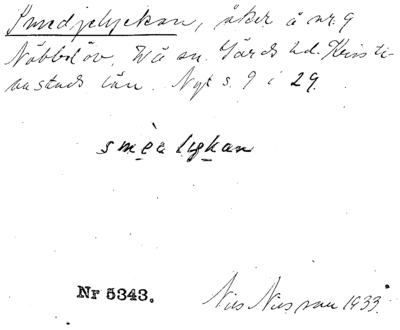 Smedjelyckan, åker å nr 9
Nöbbelöv, Vä sn. Gärds hd. Kristi-
anstads län. Nyt s. 9 i 29.
smèa lykan
Nr 5343.
Nils Nilsson 1933.